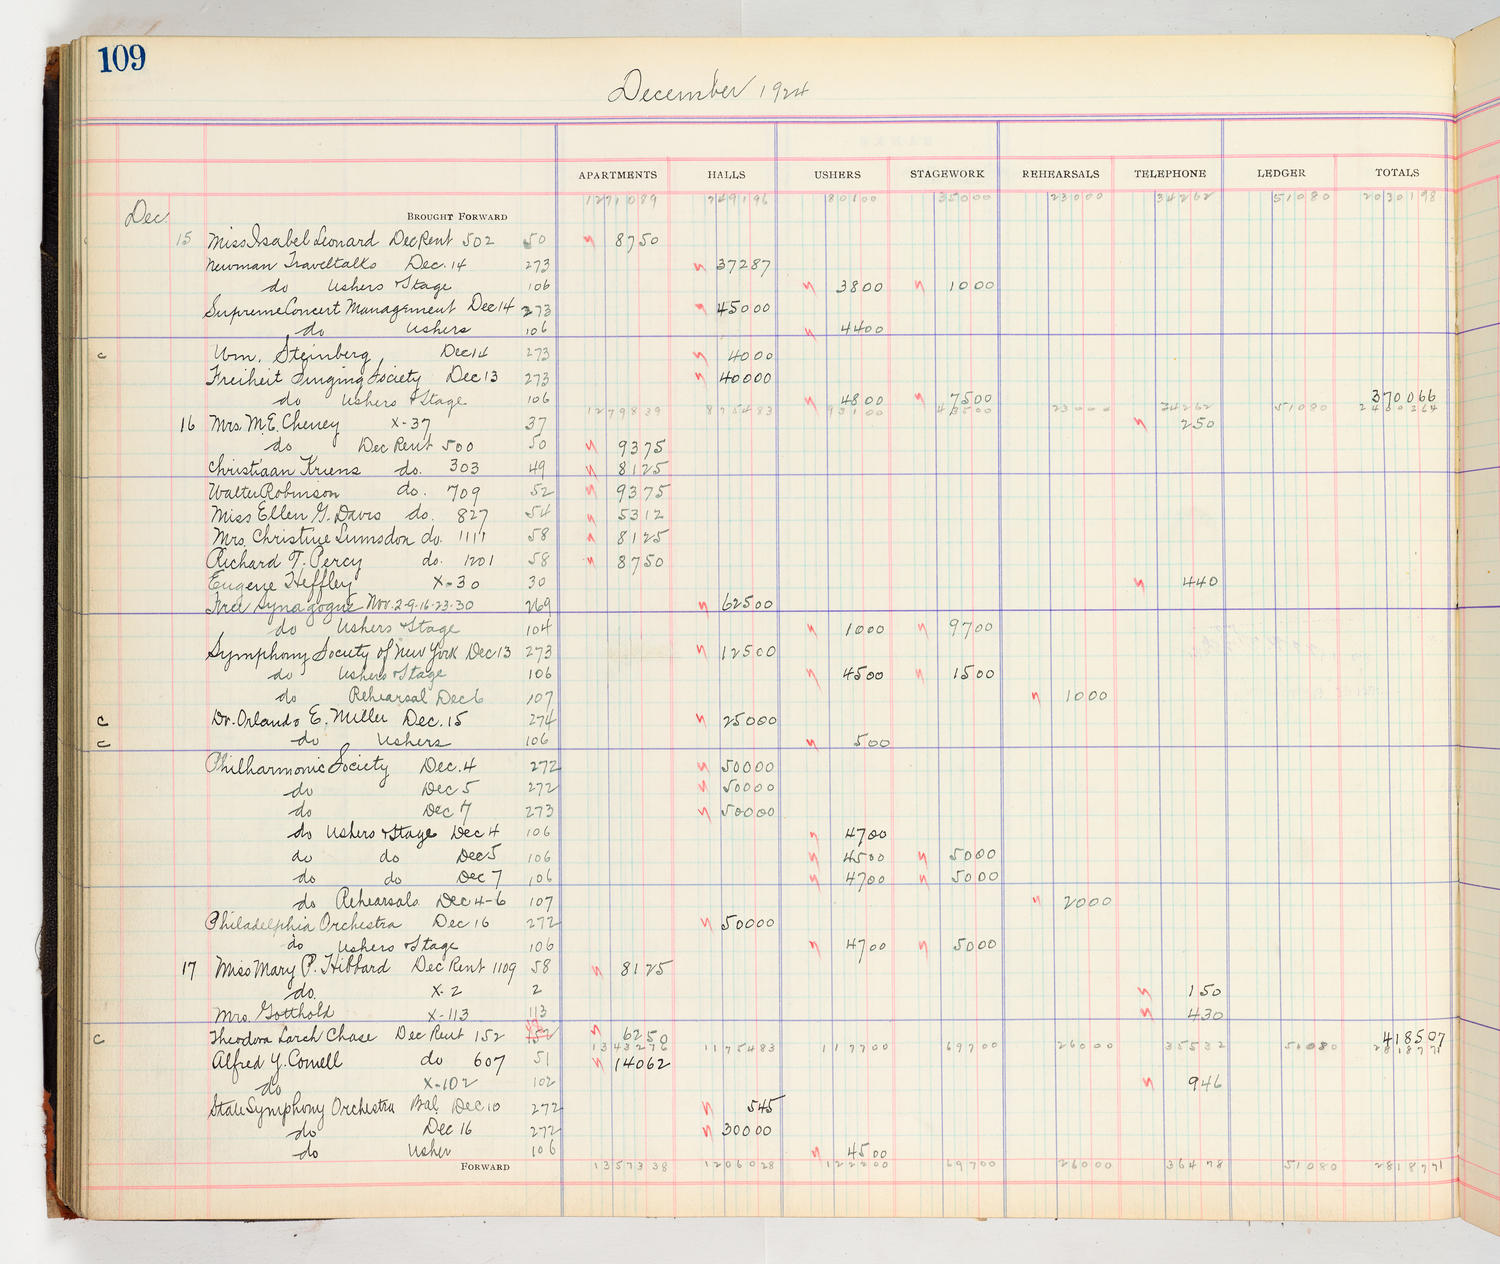 109
December 1924
APARTMENTS HALLS USHERS STAGEWORK REHEARSALS TELEPHONE LEDGER TOTALS
Dec. BROUGHT FORWARD 1271089 749196 80100 35000 23000 34262 51080 2030198
15 Miss Isabel Leonard Dec Rent 502 50 8750
Newman Traveltalks Dec. 14 273 37287
do Ushers + Stage 106 3800 1000
Supreme Concert Management Dec 14 273 45000
do Ushers 106 4400
c Wm. Steinberg, Dec 14 273 4000
Freiheit Singing Society Dec 13 273 40000
do Ushers + Stage 106 4800 7500 370066
1279839 875483 93100 43500 23000 34262 51080 2400264
16 Mrs. M.E. Cheney X-37 37 250
do Dec Rent 500 50 9375
Christiaan Kriens do. 303 49 8125
Walter Robinson do. 709 52 9375
Miss Ellen G. Davis do. 827 54 5312
Mrs. Christine Lumsdon do. 1111 58 8125
Richard T. Percy do. 1201 58 8750
Eugene Heffley X-30 30 440
Free Synagogue Nov. 2-9-16-23-30 269 62500
do Ushers + Stage 104 1000 9700
Symphony Society of New York Dec 13 273 12500
do Ushers + Stage 106 4500 1500
do Rehearsal Dec 6 107 1000
c Dr. Orlando E. Miller Dec. 15 274 25000
c do Ushers 106 500
Philharmonic Society Dec. 4 272 50000
do Dec 5 272 50000
do Dec 7 273 50000
do Ushers + Stage Dec 4 106 4700
do do Dec 5 106 4500 5000
do do Dec 7 106 4700 5000
do Rehearsals Dec 4-6 107 2000
Philadelphia Orchestra Dec 16 272 50000
do Ushers + Stage 106 4700 5000
17 Miss Mary P. Hibbard Dec Rent 1109 58 8125
do. X-2 2 150
Mrs. Gotthold X-113 113 430
c Theodora Larch Chase Dec Rent 152 152 6250 418507
1343276 1175483 117700 69700 26000 35532 51080 2818771
Alfred Y. Cornell do 607 51 14062
do X-102 102 946
State Symphony Orchestra Bal. Dec 10 272 545
do Dec 16 272 30000
do Usher 106 4500
FORWARD 1357338 1206028 122200 69700 26000 36478 51080 2818771